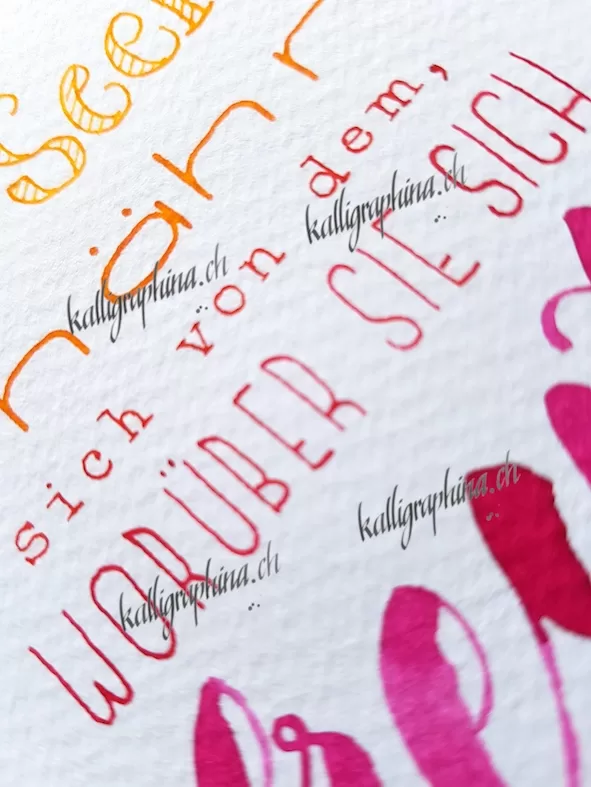 See
nähr
sich von dem,
WORÜBER SIE SICH
kalligraphina.ch
kalligraphina.ch
kalligraphina.ch
kalligraphina.ch